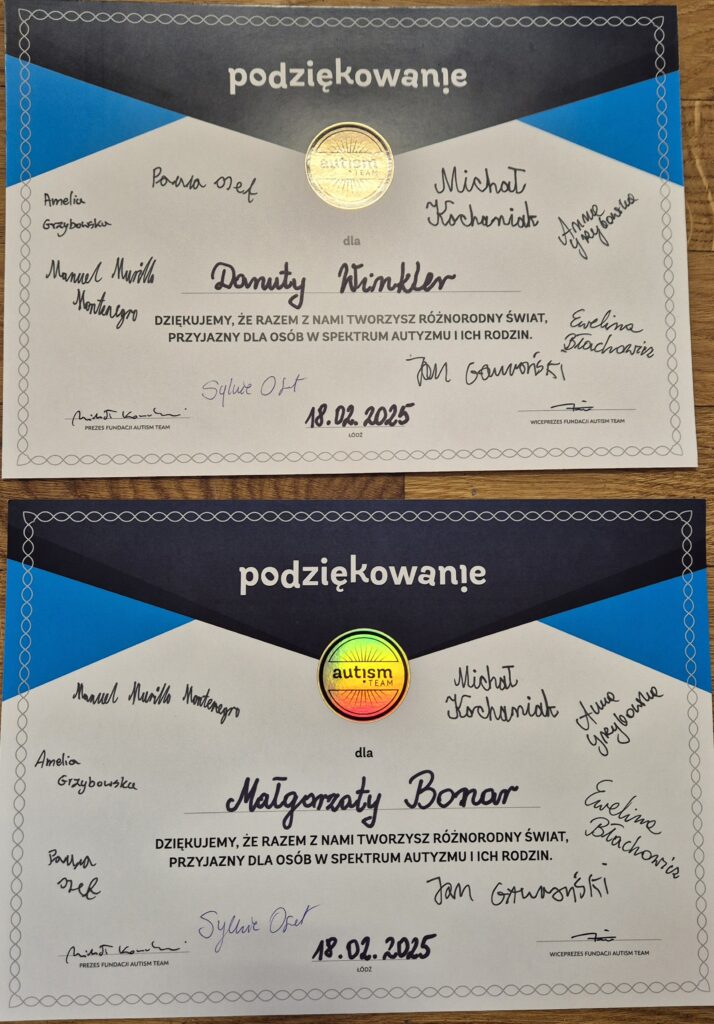 podziękowanie
autism
TEAM
Michał
Kochaniak
Amelia
Grzybowska
Anna
Grzybowska
dla
Manuel Murillo
Montenegro
Danuty Winkler
DZIĘKUJEMY, ŻE RAZEM Z NAMI TWORZYSZ RÓŻNORODNY ŚWIAT,
PRZYJAZNY DLA OSÓB W SPEKTRUM AUTYZMU I ICH RODZIN.
Ewelina
Błachowicz
Jan
Sylwie
18.02.2025
PREZES FUNDACJI AUTISM TEAM
ŁÓDŹ
WICEPREZES FUNDACJI AUTISM TEAM
podziękowanie
autism
TEAM
Manuel Murillo Montenegro
Michał
Kochaniak
Anna
Grzybowska
dla
Amelia
Grzybowska
Małgorzaty Bonar
Ewelina
Błachowicz
DZIĘKUJEMY, ŻE RAZEM Z NAMI TWORZYSZ RÓŻNORODNY ŚWIAT,
PRZYJAZNY DLA OSÓB W SPEKTRUM AUTYZMU I ICH RODZIN.
Jan
Sylwie
18.02.2025
PREZES FUNDACJI AUTISM TEAM
ŁÓDŹ
WICEPREZES FUNDACJI AUTISM TEAM